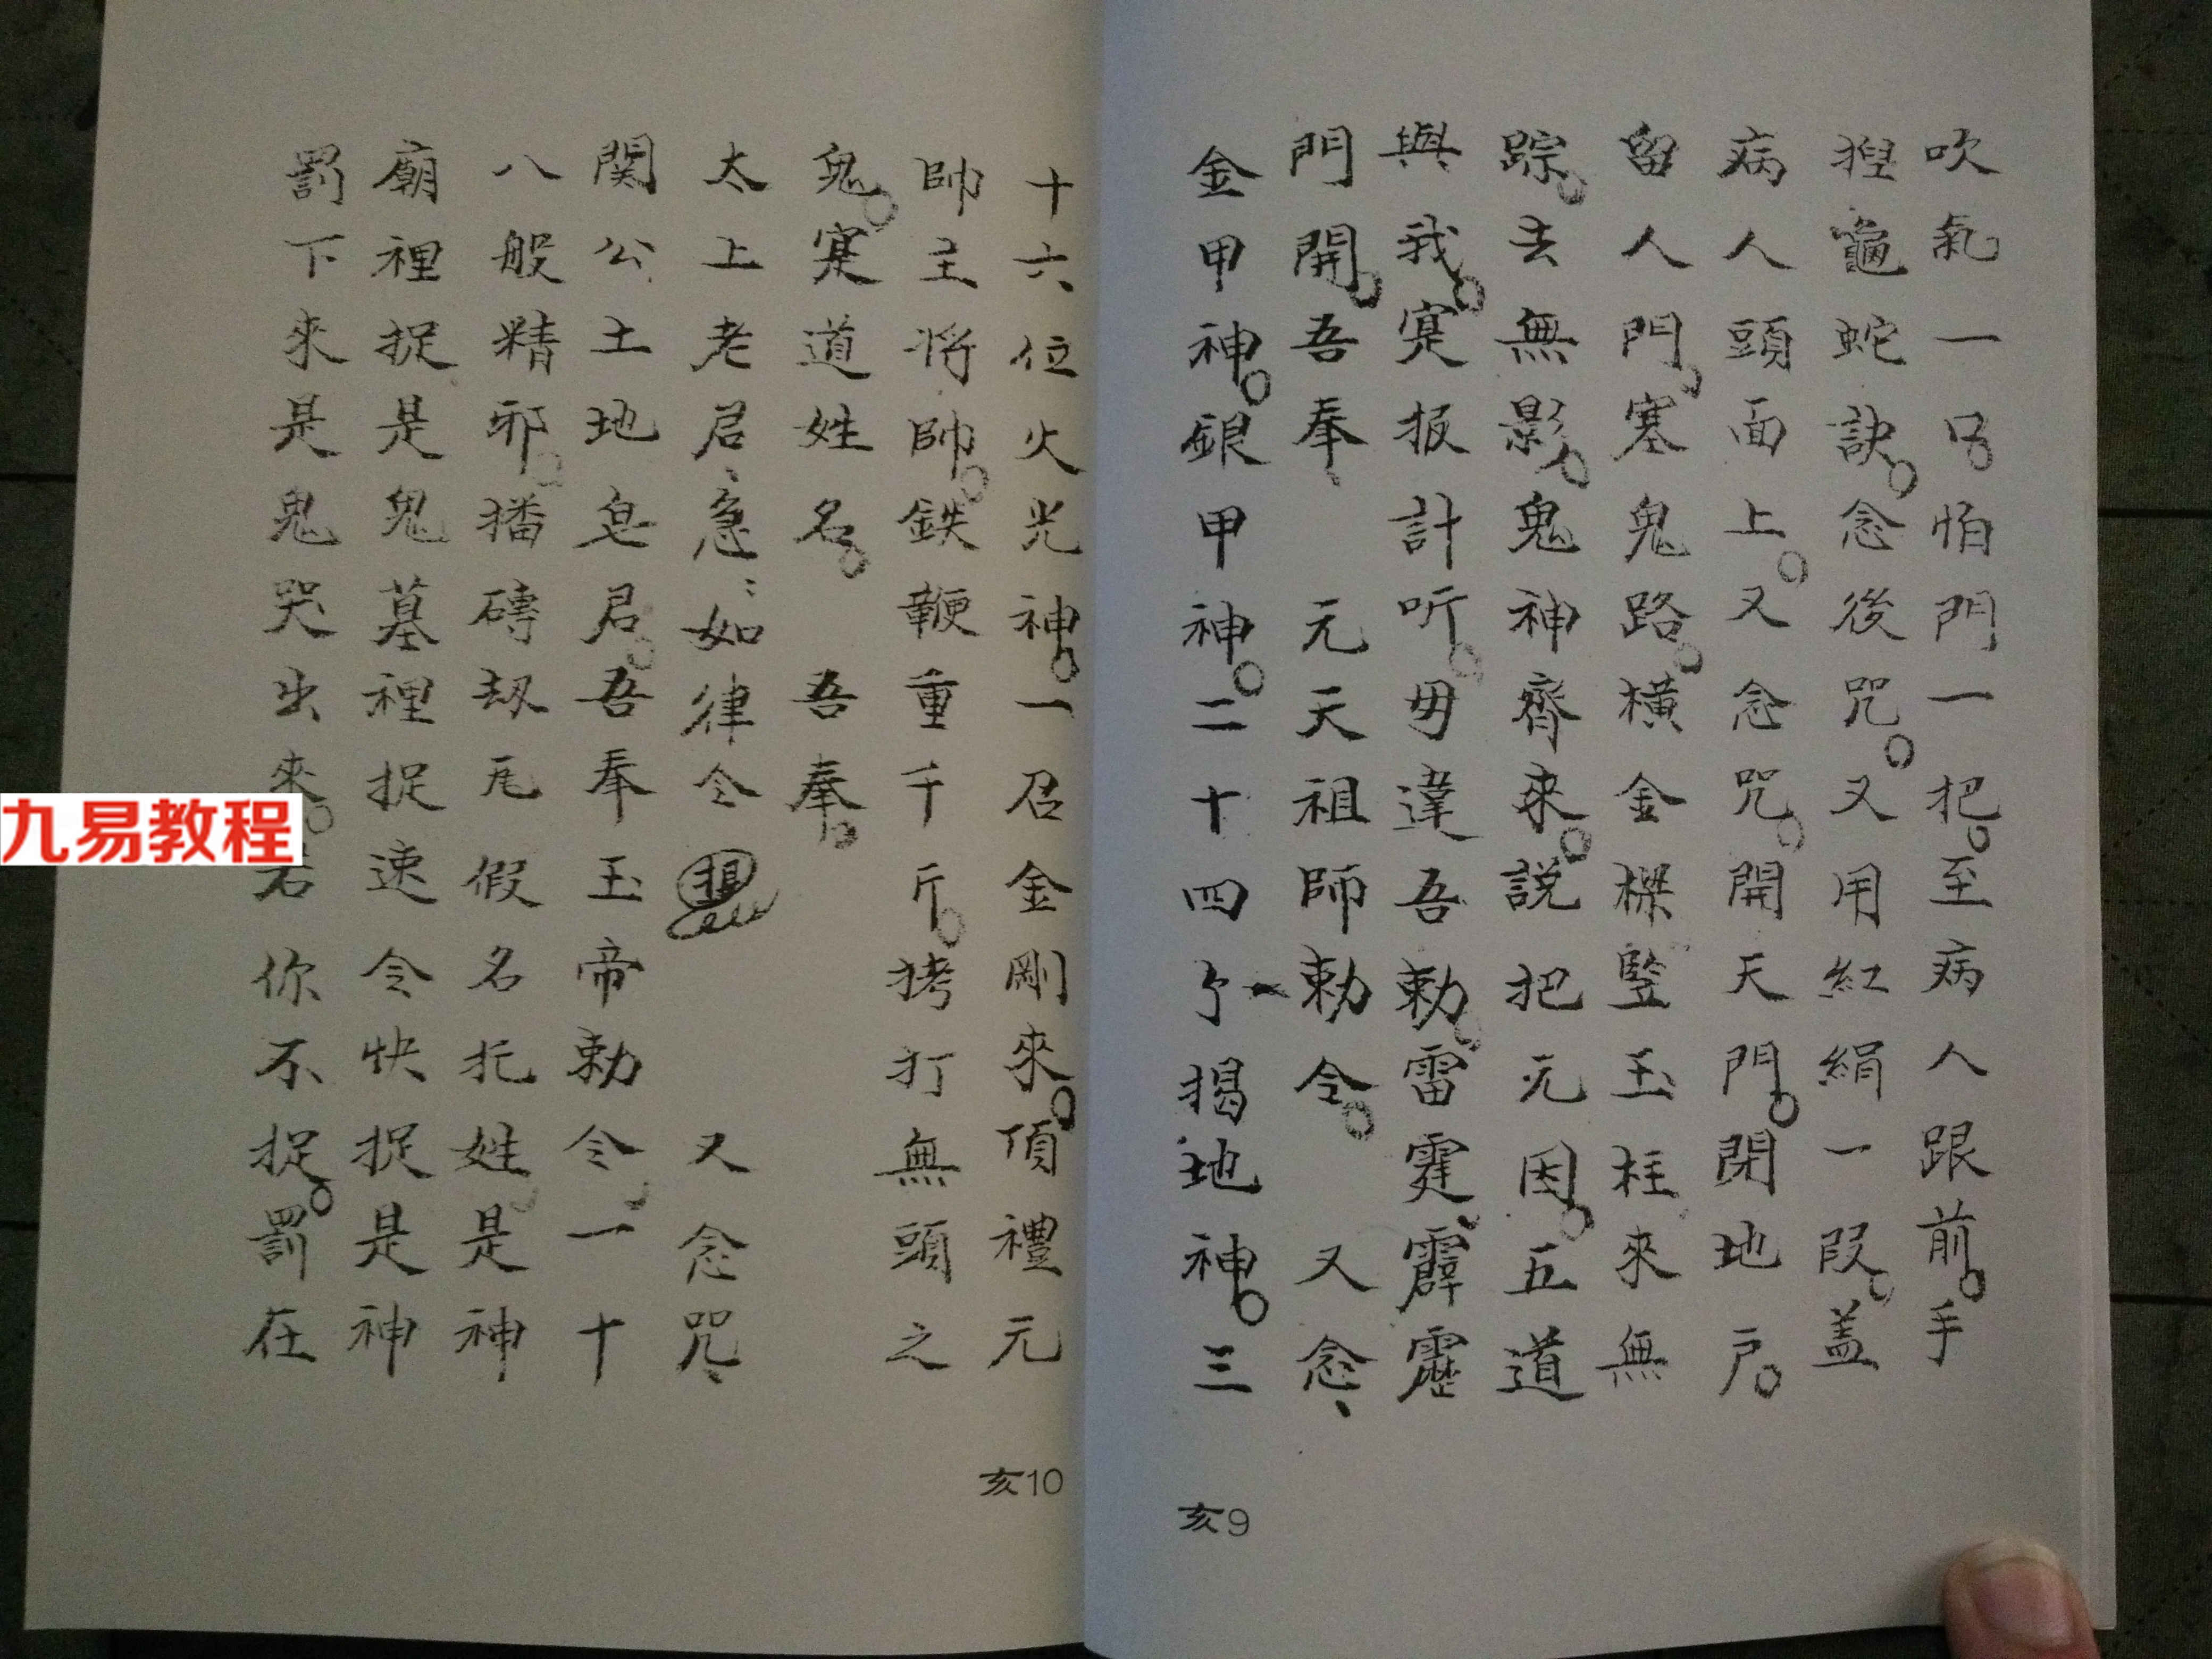 吹氣一口怕門一把。至病人跟前。手
揑龜蛇訣。念後咒。又用紅絹一段。盖
病人頭面上。又念咒。開天門。閉地户。
留人門。塞鬼路。橫金樑豎玉柱來無
踪。去無影。鬼神齊來。説把元因。五道
與我。寔报計听。毋違吾勅。雷霆霹靂
門開。吾奉 元天祖師勅令。 又念、
金甲神。銀甲神。二十四个揭地神。三
亥9
十六位火光神。一召金剛來。頂禮元
帥主将帥。鉄鞭重千斤。拷打無頭之
鬼。寔道姓名。 吾奉。
太上老君、急:如律令 又念咒、
関公土地皂君。吾奉玉帝勅令。一十
八般精邪。播磚劫瓦假名托姓。是神
廟裡捉是鬼墓裡捉速令快捉是神
罰下來是鬼哭出來。若你不捉。罰在
亥10
九易教程